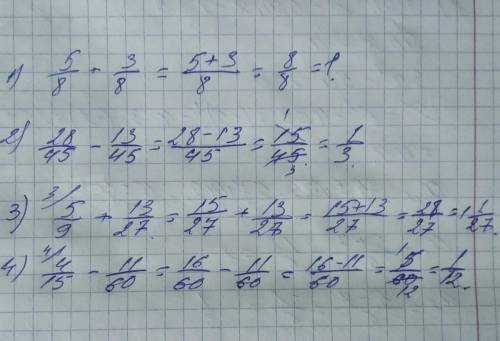 1) 5/8 + 3/8 = (5+3)/8 = 8/8 = 1.
2) 28/45 - 13/45 = (28-13)/45 = 15/45 1 3 = 1/3.
3) 3/ 5/9 + 13/27 = 15/27 + 13/27 = (15+13)/27 = 28/27 = 1 1/27.
4) 4/ 4/15 - 11/60 = 16/60 - 11/60 = (16-11)/60 = 5/60 1 12 = 1/12.